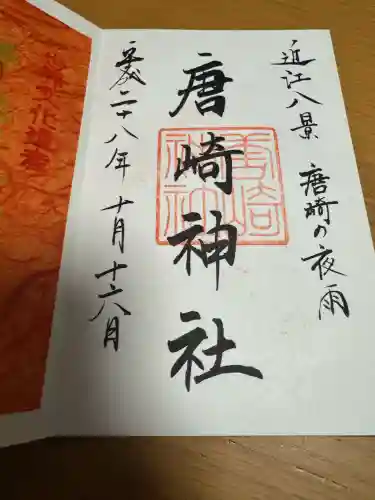 近江八景 唐崎の夜雨
唐崎神社
平成二十八年 十月 十六日